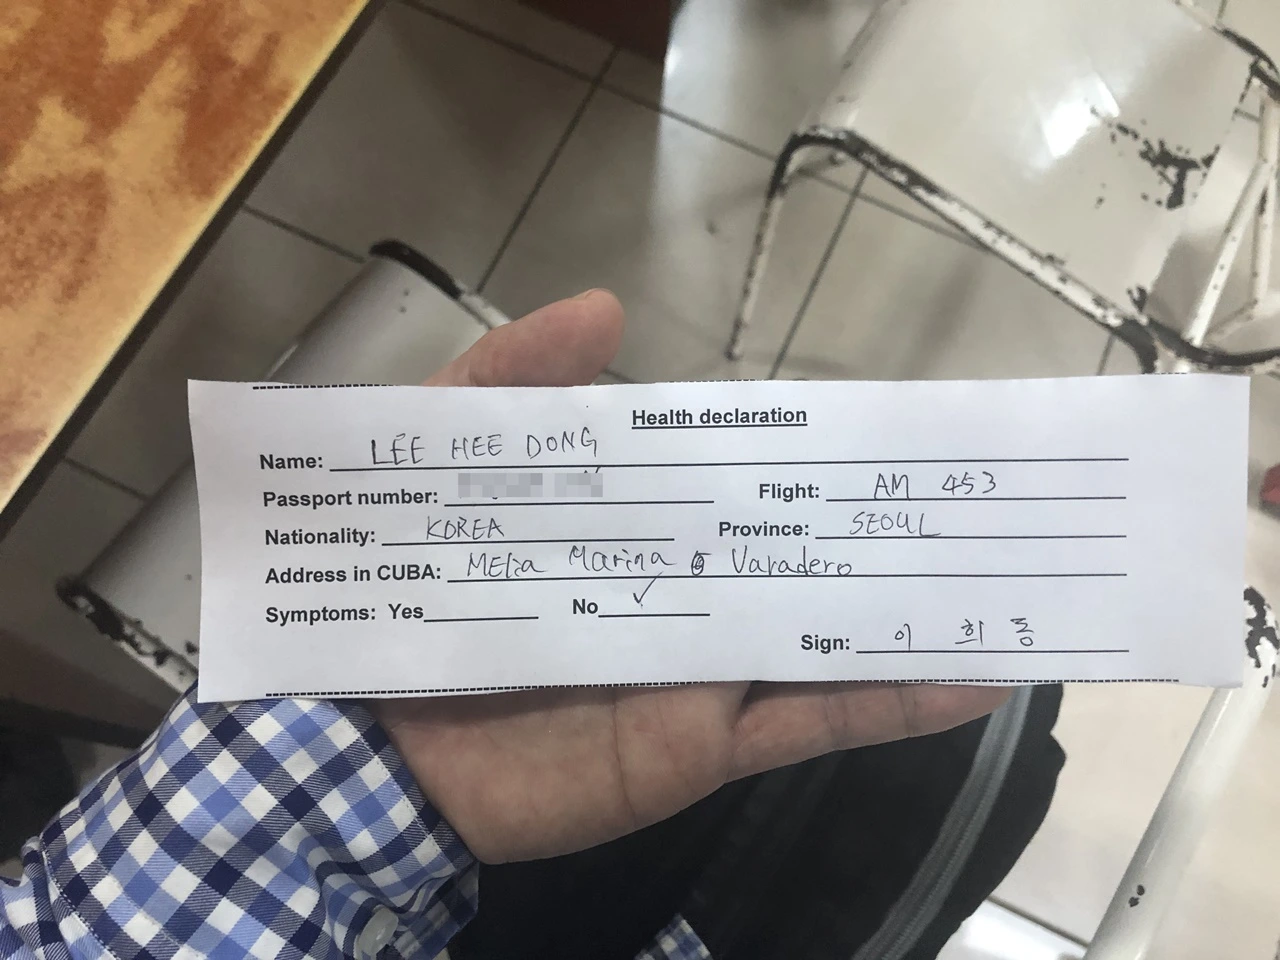 Health declaration
Name: LEE HEE DONG
Passport number: Flight: AM 453
Nationality: KOREA Province: SEOUL
Address in CUBA: MElia Marina Varadero
Symptoms: Yes No ✓
Sign: 이 희 동